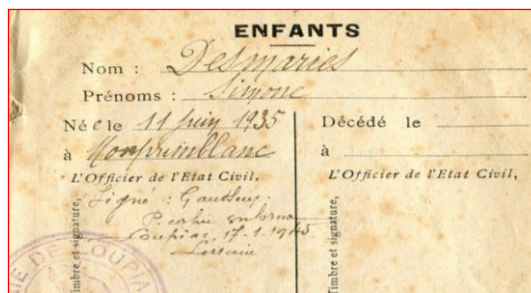 ENFANTS
Nom : Desmaries
Prénoms : Simone
Née le 11 Juin 1935
à Monprimblanc
L'Officier de l'Etat Civil,
Signé :
P. copie conforme
Loupiac, 17-1-1945
Timbre et signature,
Décédé le
à
L'Officier de l'Etat Civil,
Timbre et signature,
RIE DE LOUPIA